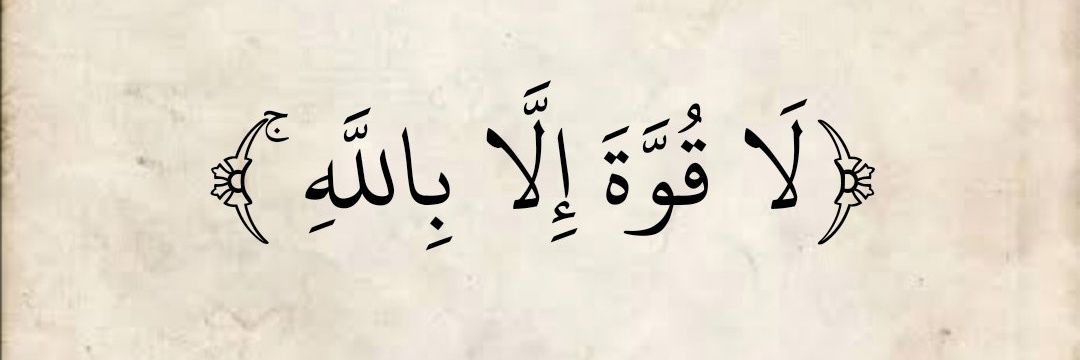 ﴿لَا قُوَّةَ إِلَّا بِاللَّهِ ۚ﴾